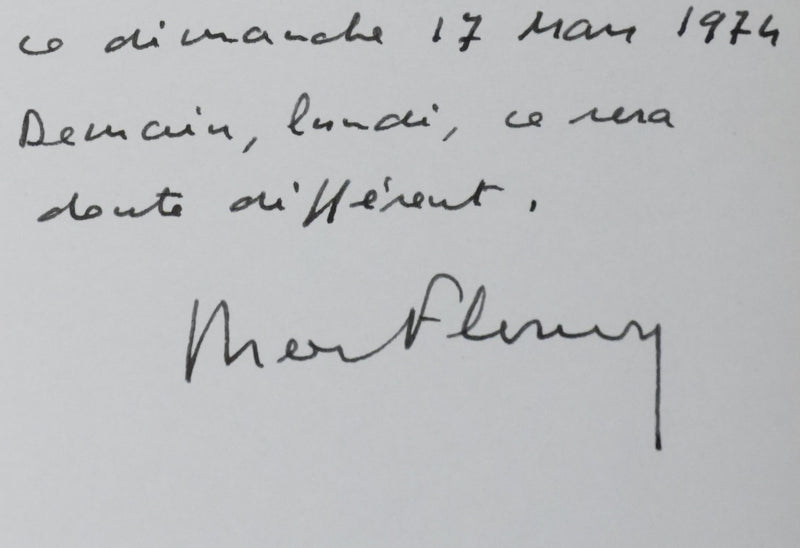 ce dimanche 17 mars 1974
Demain, lundi, ce sera
doute différent.